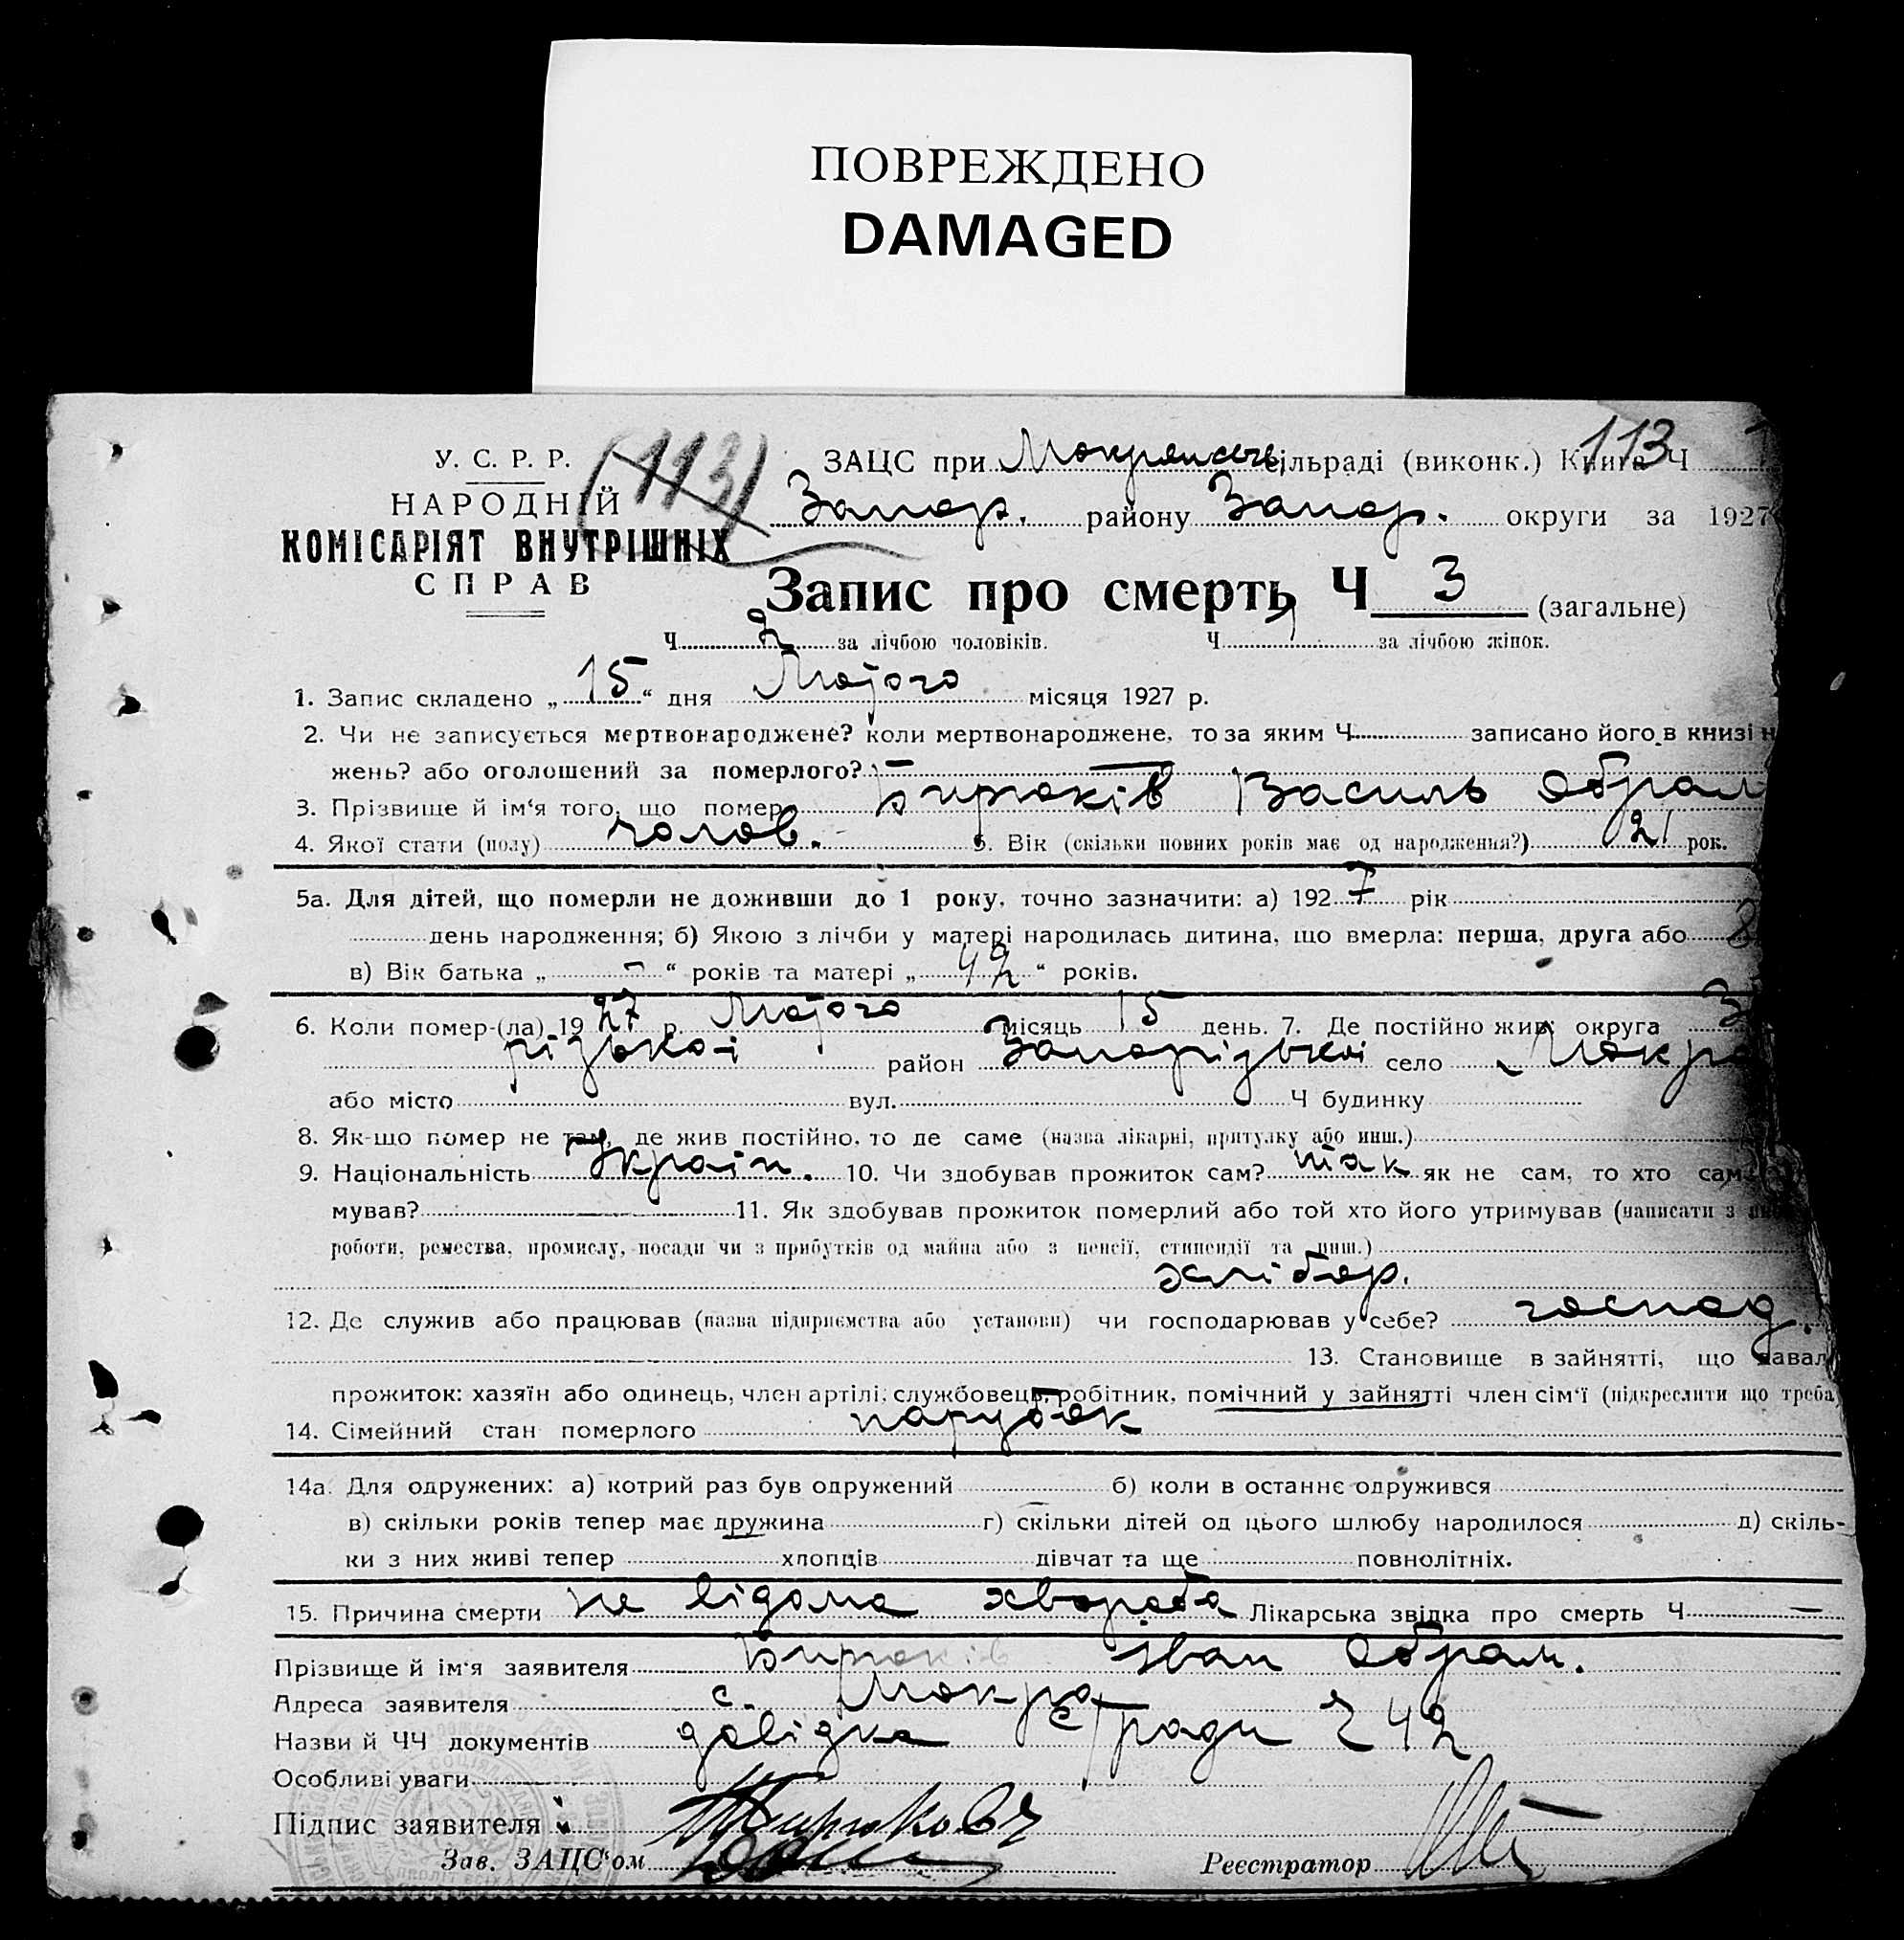 ПОВРЕЖДЕНО
DAMAGED
У. С. Р. Р.
НАРОДНІЙ
КОМІСАРІЯТ ВНУТРІШНІХ
СПРАВ
(113)
113
ЗАЦС при сільраді (виконк.) Книга Ч
Запор. району Запор. округи за 1927
Запис про смерть Ч 3 (загальне)
Ч 2 за лічбою чоловіків. Ч 1 за лічбою жінок.
1. Запис складено „15“ дня Лютого місяця 1927 р.
2. Чи не записується мертвонароджене? коли мертвонароджене, то за яким Ч записано його в книзі н
жень? або оголошений за померлого? —
3. Прізвище й ім‘я того, що помер Бирюків Василь Абрам
4. Якої стати (полу) чолов. 5. Вік (скільки повних років має од народження?) 21 рок.
5а. Для дітей, що померли не доживши до 1 року, точно зазначити: а) 1927 рік
день народження; б) Якою з лічби у матері народилась дитина, що вмерла: перша, друга або 8
в) Вік батька „ - “ років та матері „ 42 “ років.
6. Коли помер-(ла) 1927 р. Лютого місяць 15 день. 7. Де постійно жив: округа З
різької район Запорізької село Мокра
або місто вул. Ч будинку
8. Як-що помер не там, де жив постійно, то де саме (назва лікарні, притулку або инш.)
9. Національність Україн. 10. Чи здобував прожиток сам? так як не сам, то хто сам
мував? — 11. Як здобував прожиток померлий або той хто його утримував (написати з
роботи, ремества, промислу, посади чи з прибутків од майна або з пенсії, стипендії та инш.)
хлібор.
12. Де служив або працював (назва підприємства або установи) чи господарював у себе? господ.
13. Становище в зайнятті, що давал
прожиток: хазяїн або одинець, член артілі, службовець, робітник, помічний у зайнятті член сім‘ї (підкреслити що треба)
14. Сімейний стан померлого парубок
14а. Для одружених: а) котрий раз був одружений б) коли в останнє одружився
в) скільки років тепер має дружина г) скільки дітей од цього шлюбу народилося д) скіль-
ки з них живі тепер хлопців дівчат та ще повнолітніх.
15. Причина смерти не відома хвороба Лікарська звідка про смерть Ч —
Прізвище й ім‘я заявителя Бирюків Іван Абрам.
Адреса заявителя с. Мокра
Назви й ЧЧ документів довідка с/ради Ч 42
Особливі уваги
Підпис заявителя
Зав. ЗАЦС‘ом Реєстратор